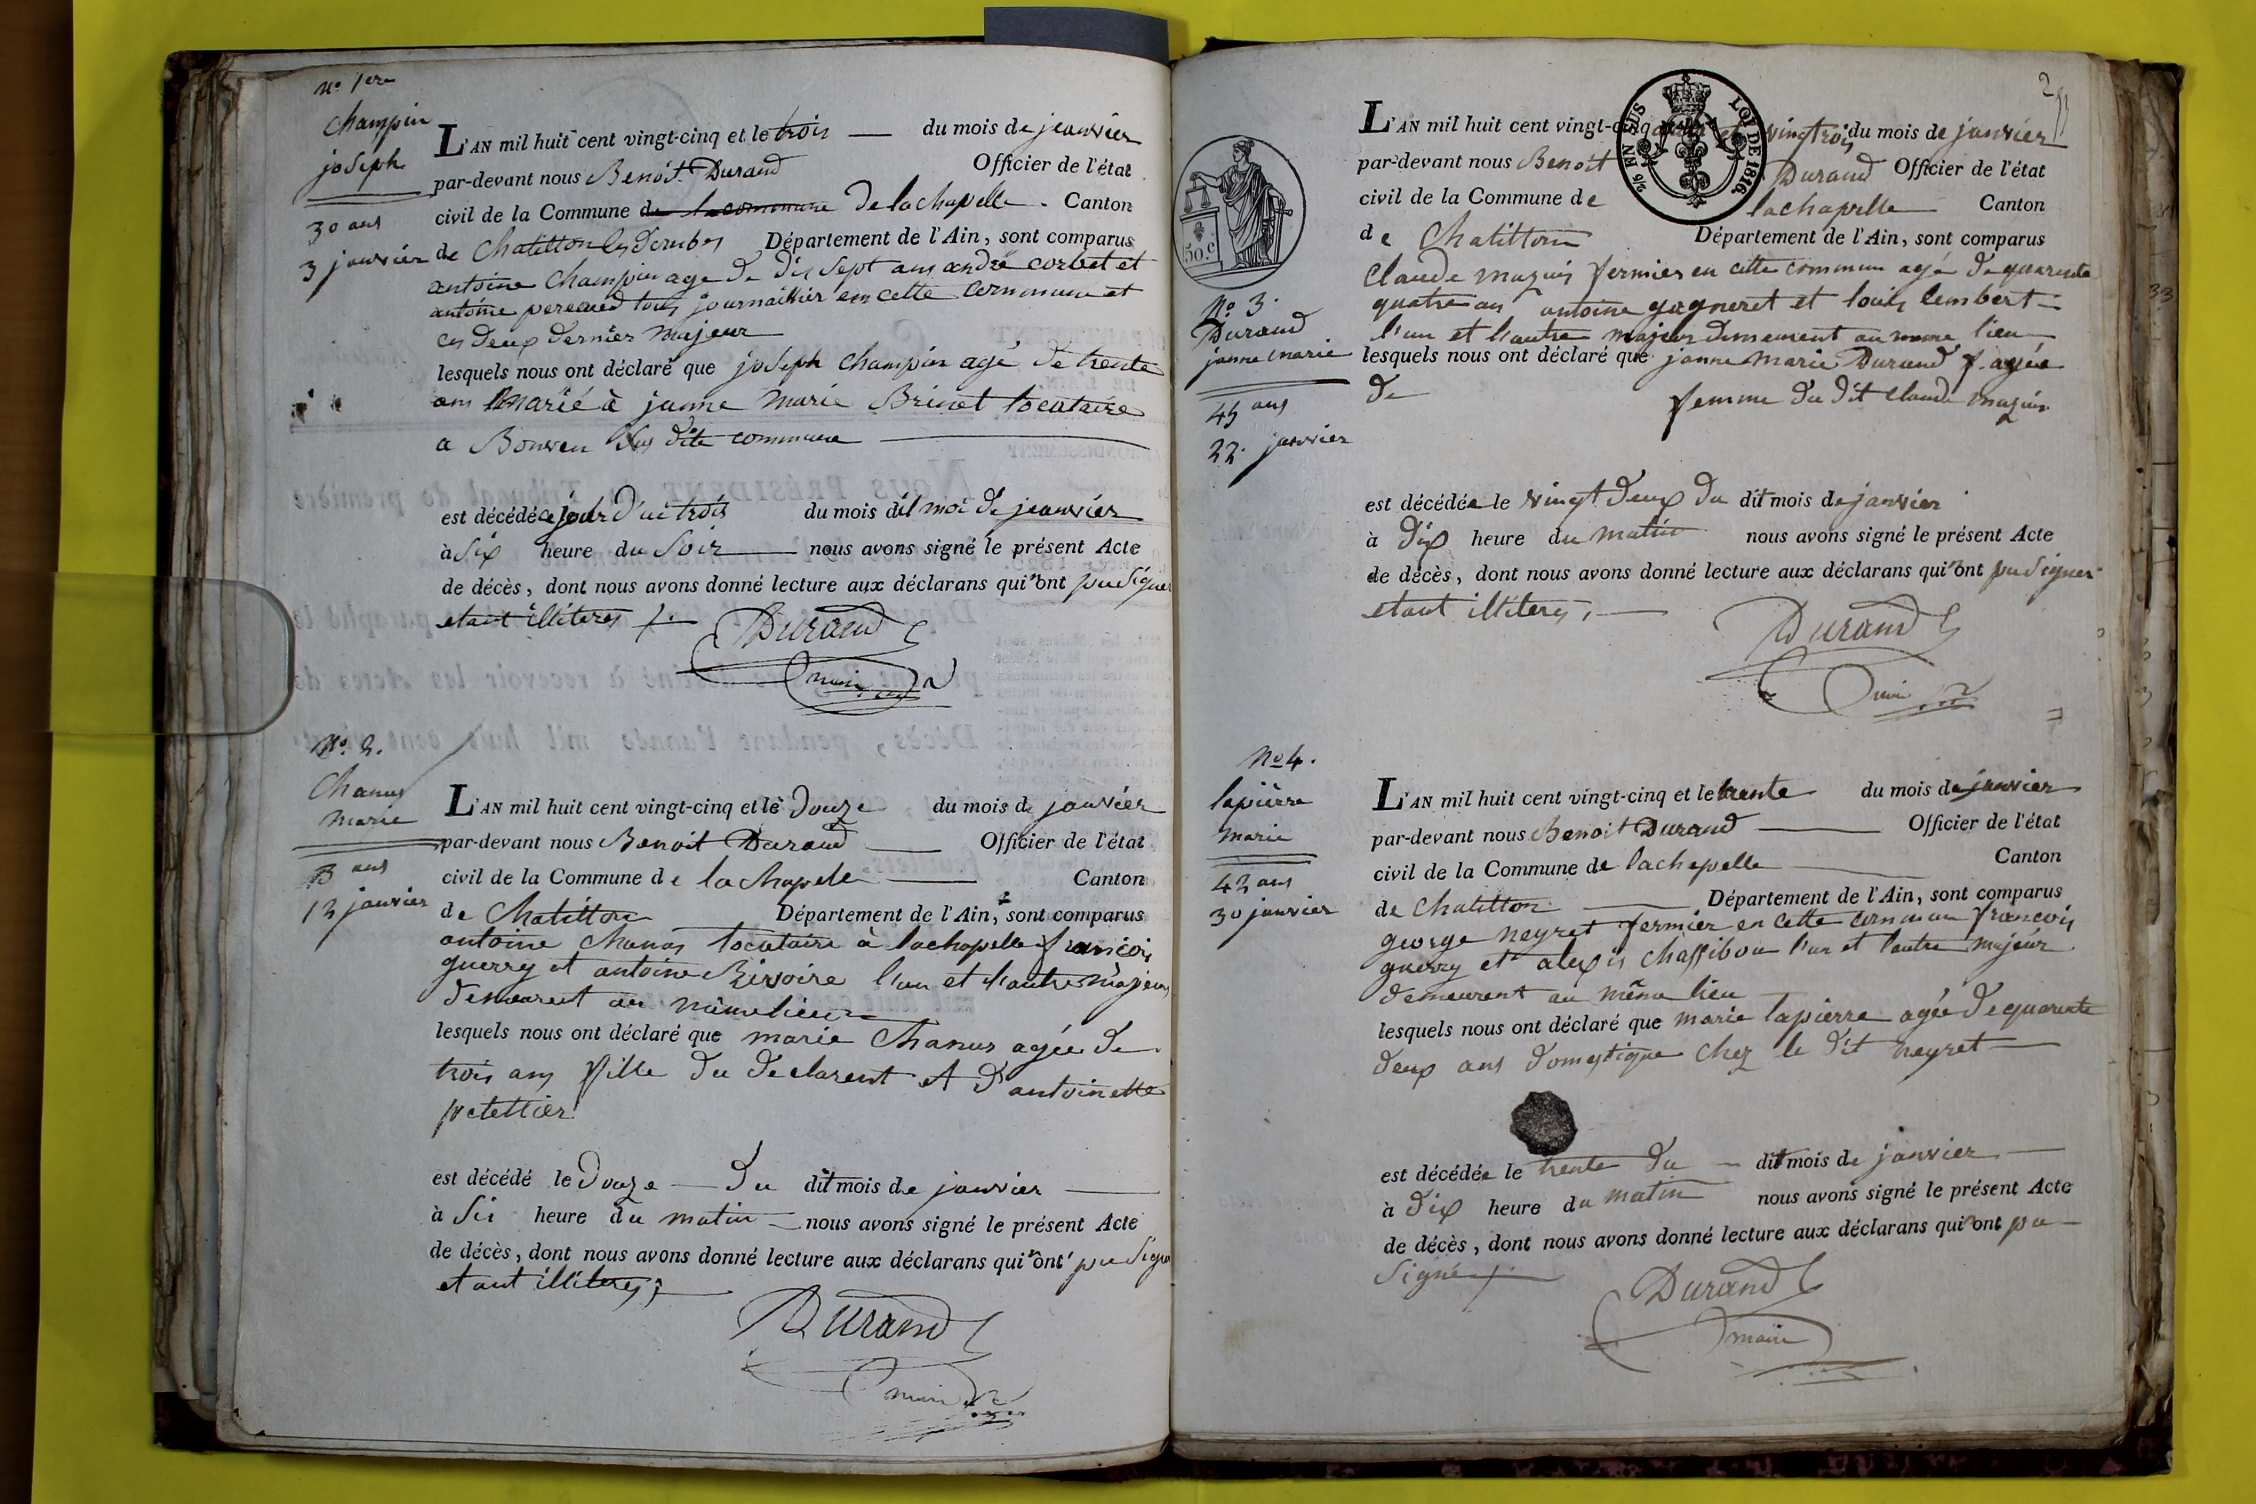 No 1ere
Champin
joseph
30 ans
3 janvier
L'AN mil huit cent vingt-cinq et le trois du mois de jeanvier
par-devant nous Benoit Durand Officier de l'état
civil de la Commune de la commune De lachapelle. Canton
de Chatillon les Dombes Département de l'Ain, sont comparus
antoine Champin age de dis sept ans andré corbet et
antoine tous journaillier en cette commune et
ces deux dernier majeur
lesquels nous ont déclaré que joseph Champin agé de trente
ans marié à janne Marie Brinet locataire
a sus dite commune
est décédé ce jour d'ui trois du mois dit moi de jeanvier
à six heure du soir nous avons signé le présent Acte
de décès, dont nous avons donné lecture aux déclarans qui n'ont pu signer
etant illiteres
Durand
maire
No 2.
Chanus
Marie
3 ans
12 janvier
L'AN mil huit cent vingt-cinq et le Douze du mois de janvier
par-devant nous Benoit Durand Officier de l'état
civil de la Commune de la Chapelle Canton
de Chatillon Département de l'Ain, sont comparus
antoine Chanas locataire à lachapelle francois
guerry et antoine Rivoire l'un et l'autre majeur
demeurent au même lieu
lesquels nous ont déclaré que marie Chanus agée de
trois ans fille du declarent et d'antoinette
peletier
est décédé le Douze du dit mois de janvier
à Sis heure du matin nous avons signé le présent Acte
de décès, dont nous avons donné lecture aux déclarans qui n'ont pu signer
etant illiteres
Durand
maire
2
2/6 EN SUS LOI DE 1816.
50.c
No 3.
Durand
janne marie
45 ans
22. janvier
L'AN mil huit cent vingt-cinq et vingtrois du mois de janvier
par-devant nous Benoit Durand Officier de l'état
civil de la Commune de lachapelle Canton
de Chatillon Département de l'Ain, sont comparus
Claude mazuis fermier en cette commun agé de quarente
quatre ans antoine gagneret et louis lembert
l'un et l'autre majeur demeurent au meme lieu
lesquels nous ont déclaré que janne marie Durand f. agée
de femme du dit Claude mazuis
est décédée le vingt deux du dit mois de janvier
à dix heure du matin nous avons signé le présent Acte
de décès, dont nous avons donné lecture aux déclarans qui n'ont pu signer
etant illiteres,
Durand
maire
No 4.
lapierre
marie
42 ans
30 janvier
L'AN mil huit cent vingt-cinq et le trente du mois de janvier
par-devant nous Benoit Durand Officier de l'état
civil de la Commune de lachapelle Canton
de Chatillon Département de l'Ain, sont comparus
george neyret fermier en cette commun francois
guerry et alexis chassibou l'un et l'autre majeur
demeurent au même lieu
lesquels nous ont déclaré que marie lapierre agée de quarente
deux ans domestique chez le dit neyret
est décédée le trente du dit mois de janvier
à dix heure du matin nous avons signé le présent Acte
de décès, dont nous avons donné lecture aux déclarans qui n'ont pu
signé
Durand
maire